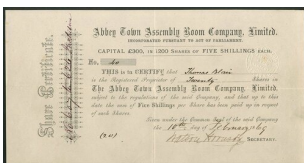 Abbey Town Assembly Room Company, Limited.
INCORPORATED PURSUANT TO ACT OF PARLIAMENT.
CAPITAL £300, IN 1200 SHARES OF FIVE SHILLINGS EACH.
No. 40
THIS is to CERTIFY that Thomas Blain
is the Registered Proprietor of Twenty Shares in
The Abbey Town Assembly Room Company, Limited.
subject to the regulations of the said Company, and that up to this
date the sum of Five Shillings per Share has been paid up in respect
of such Shares.
Given under the Common Seal of the said Company
the 10th day of February
SECRETARY.
(20)
Share Certificate.